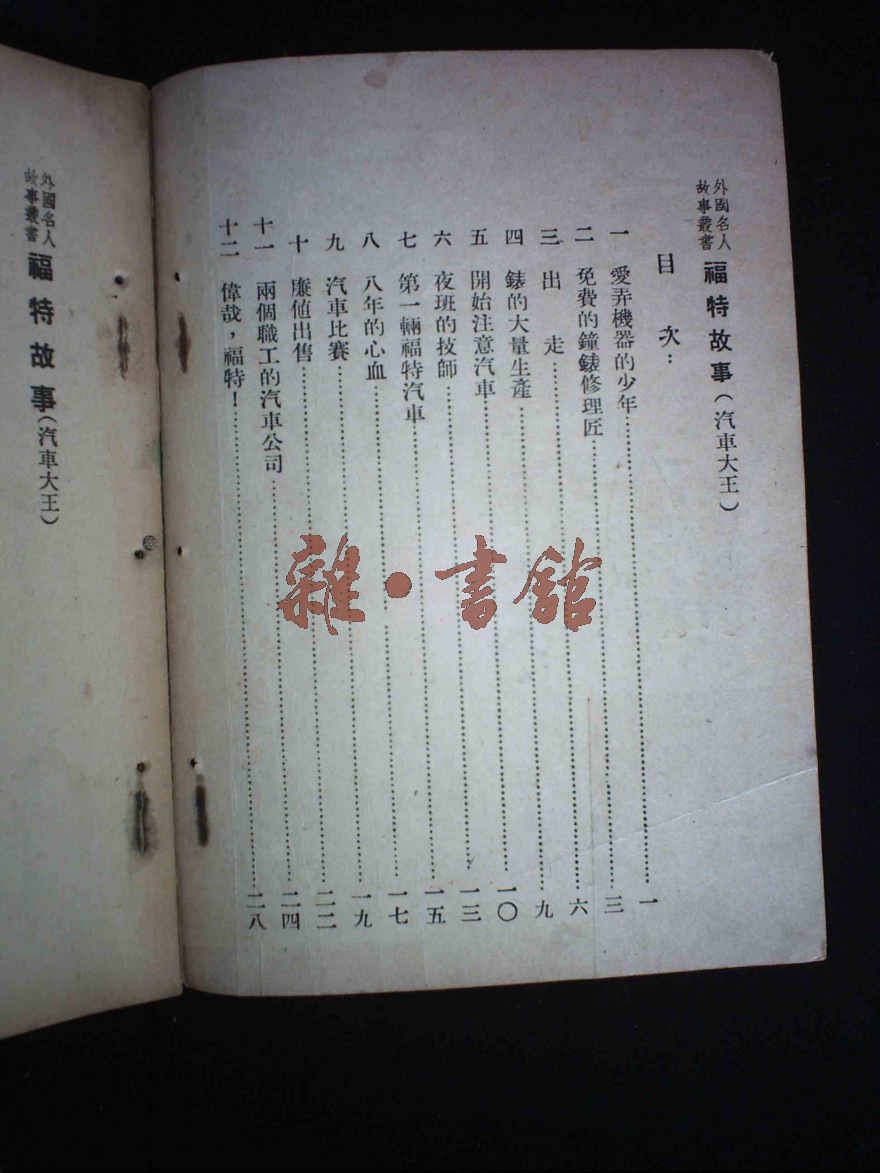 外國名人
故事叢書
福特故事(汽車大王)
目次:
一 愛弄機器的少年……一
二 免費的鐘錶修理匠……三
三 出走……六
四 錶的大量生產……九
五 開始注意汽車……一〇
六 夜班的技師……一三
七 第一輛福特汽車……一五
八 八年的心血……一七
九 汽車比賽……一九
十 廉值出售……二二
十一 兩個職工的汽車公司……二四
十二 偉哉,福特!……二八
外國名人
故事叢書
福特故事(汽車大王)
雜·書館